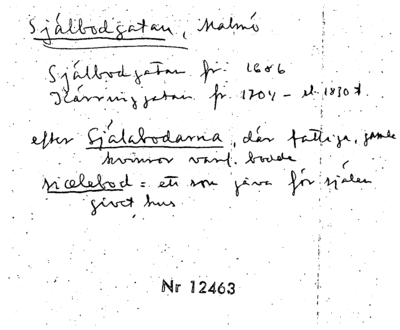 Själbodgatan, Malmö
Själbodgatan fr. 1686
Kärringgatan fr 1704 – 1830 t.
efter Själabodarna, där fattiga, gamla
kvinnor bodde
siælebod = ett som gåva för själen
givet hus
Nr 12463